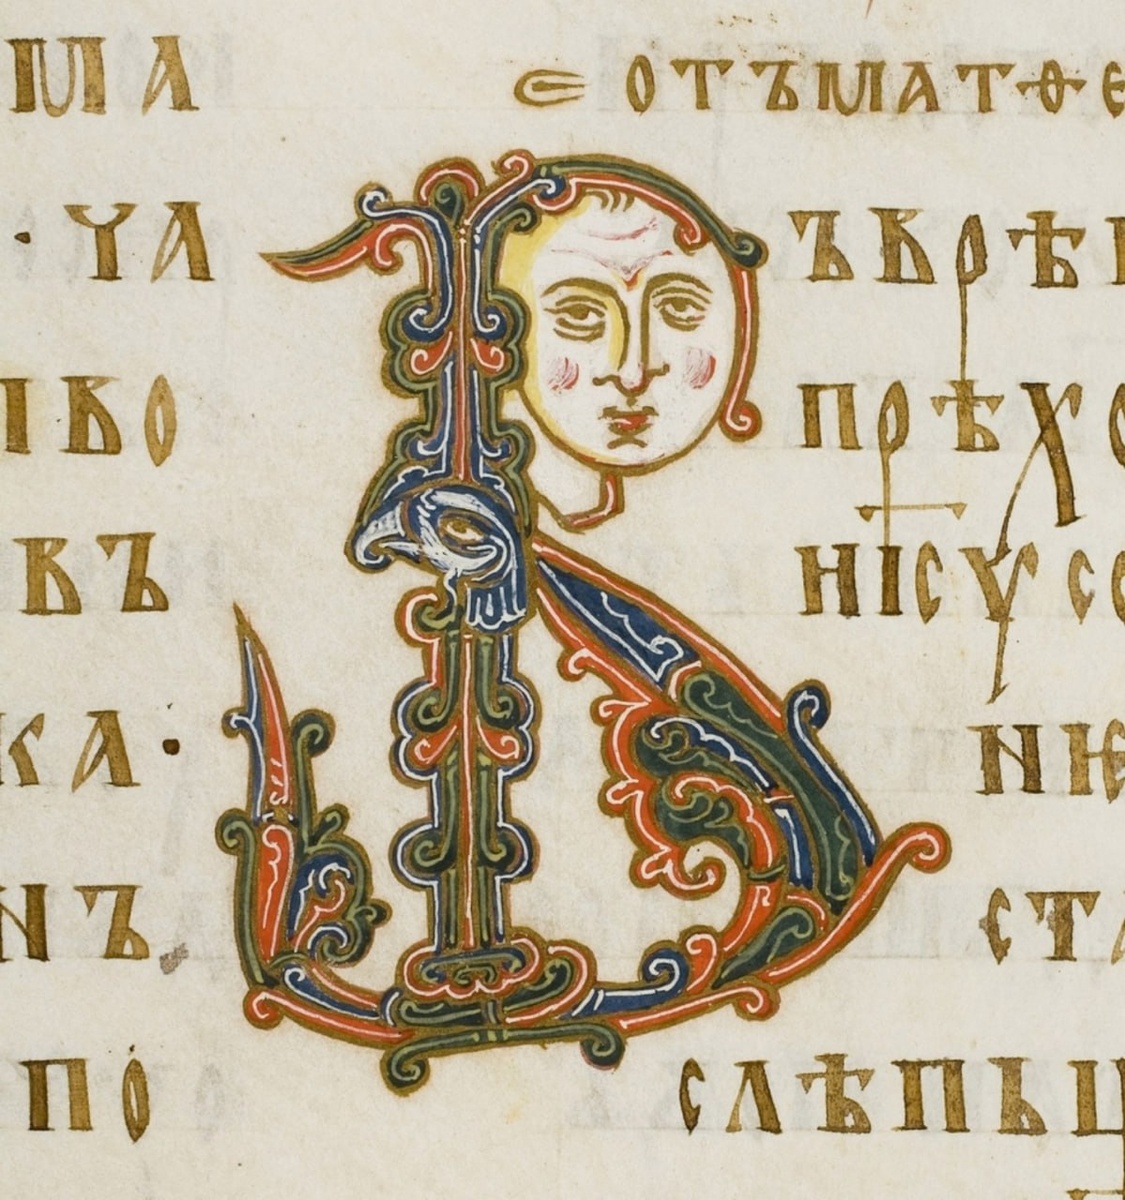 МА
· ЧА
ВО
ВЪ
КА ·
НЪ
ПО
Є ОТЪМАТѲЕ
ВЪВРѢ
ПРѢХО
ИІСУСО
НѤ
СТА
СЛѢПЬЦ